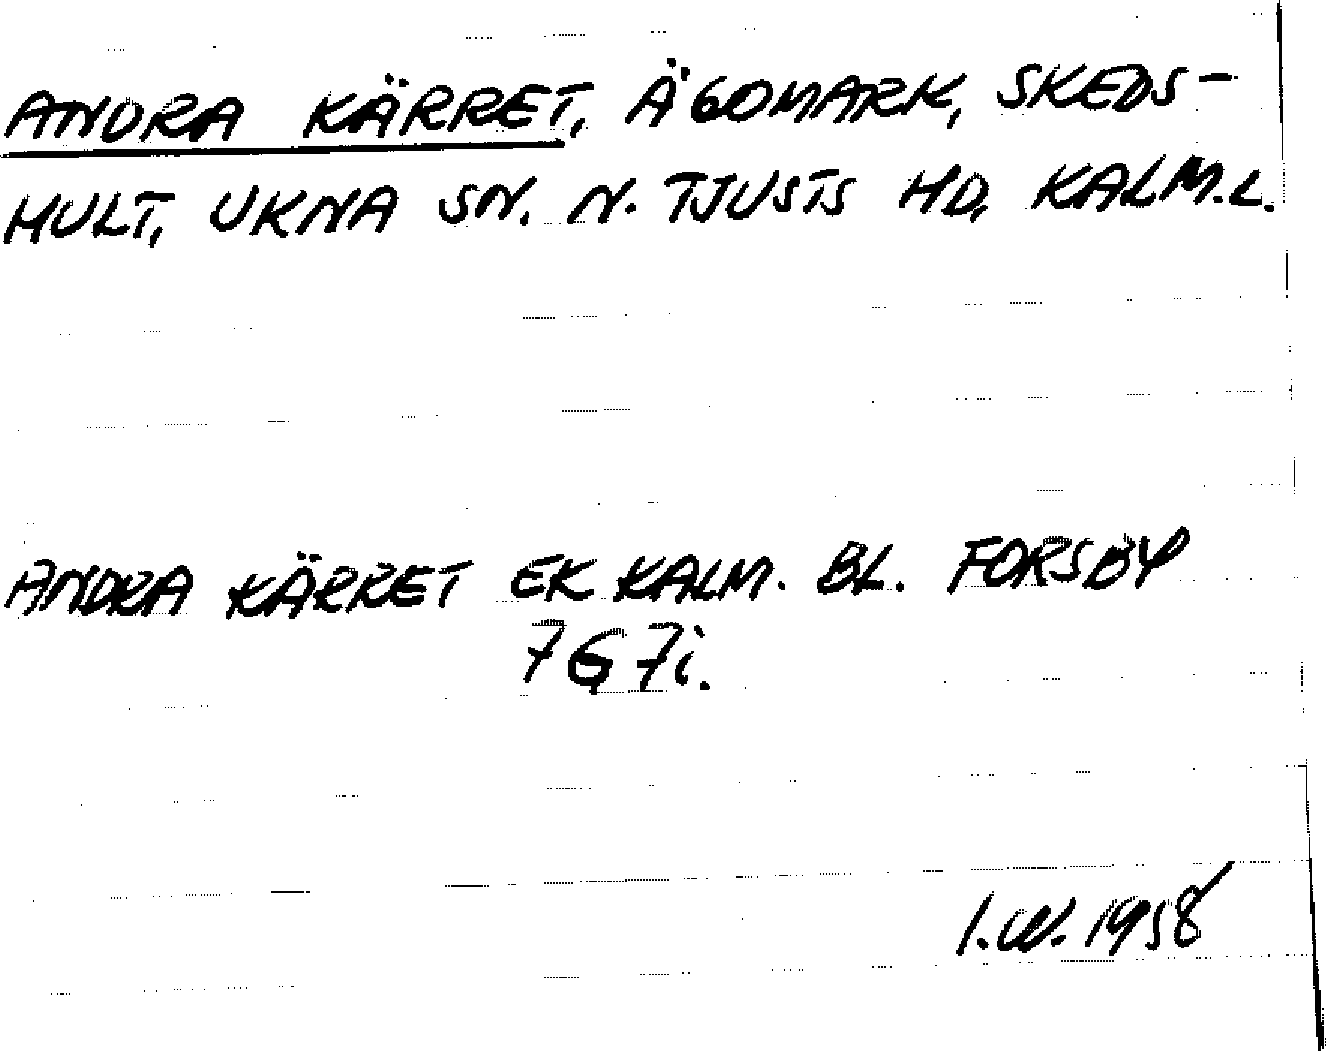 ANDRA KÄRRET, ÄGOMARK, SKEDS-
HULT, UKNA SN. N. TJUSTS HD, KALM.L.
ANDRA KÄRRET EK KALM. BL. FORSBY
7G 7i.
I.W. 1958